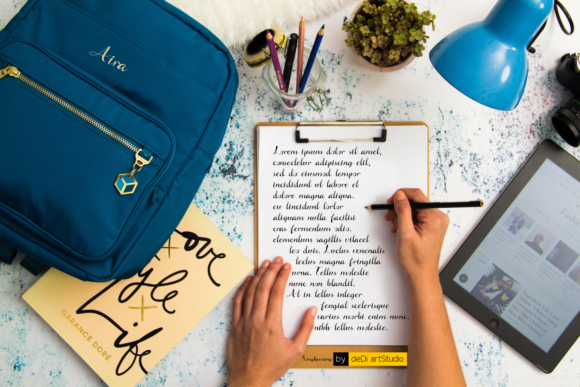 Aira
Lorem ipsum dolor sit amet,
consectetur adipiscing elit,
sed do eiusmod tempor
incididunt ut labore et
dolore magna aliqua,
eu tincidunt tortor
aliquam nulla facilisi
cras fermentum odio,
elementum sagittis vitae
Lectus venenatis
lectus magna fringilla
Tellus molestie
nunc non blandit.
At in tellus integer
feugiat scelerisque
varius morbi enim nunc
tellus molestie.
Love
Style
Life
GARANCE DORÉ
by. deDi artStudio